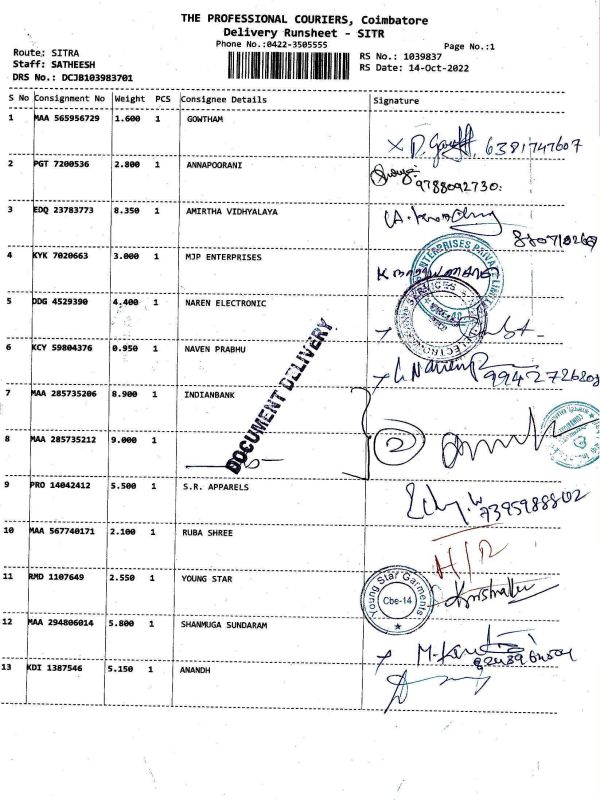 THE PROFESSIONAL COURIERS, Coimbatore
Delivery Runsheet - SITR
Phone No.:0422-3505555
Page No.:1
Route: SITRA
RS No.: 1039837
Staff: SATHEESH
RS Date: 14-Oct-2022
DRS No.: DCJB103983701
S No Consignment No Weight PCS Consignee Details Signature
1 MAA 565956729 1.600 1 GOWTHAM
6381747607
2 PGT 7200536 2.800 1 ANNAPOORANI
9788092730
3 EDQ 23783773 8.350 1 AMIRTHA VIDHYALAYA
4 KYK 7020663 3.000 1 MJP ENTERPRISES
ENTERPRISES PRIVATE
5 DDG 4529390 4.400 1 NAREN ELECTRONIC
6 KCY 59804376 0.950 1 NAVEN PRABHU
DOCUMENT DELIVERY
7 MAA 285735206 8.900 1 INDIANBANK
8 MAA 285735212 9.000 1
2
9 PRO 14042412 5.500 1 S.R. APPARELS
7395988802
10 MAA 567740171 2.100 1 RUBA SHREE
11 RMD 1107649 2.550 1 YOUNG STAR
Young Star Garments
Cbe-14
12 MAA 294806014 5.800 1 SHANMUGA SUNDARAM
13 KDI 1387546 5.150 1 ANANDH